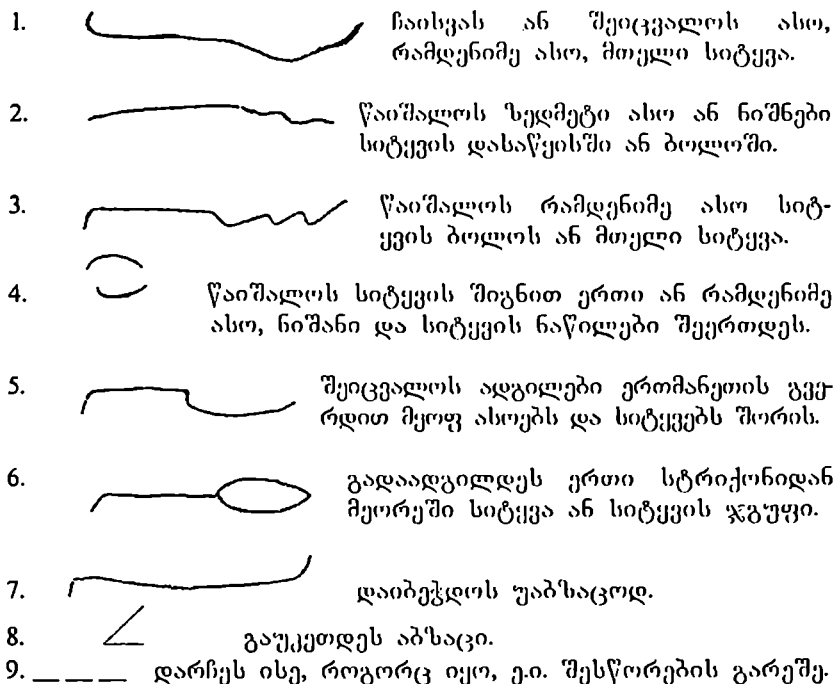 1. ჩაისვას ან შეიცვალოს ასო,
რამდენიმე ასო, მთელი სიტყვა.
2. წაიშალოს ზედმეტი ასო ან ნიშნები
სიტყვის დასაწყისში ან ბოლოში.
3. წაიშალოს რამდენიმე ასო სიტ-
ყვის ბოლოს ან მთელი სიტყვა.
4. წაიშალოს სიტყვის შიგნით ერთი ან რამდენიმე
ასო, ნიშანი და სიტყვის ნაწილები შეერთდეს.
5. შეიცვალოს ადგილები ერთმანეთის გვე-
რდით მყოფ ასოებს და სიტყვებს შორის.
6. გადაადგილდეს ერთი სტრიქონიდან
მეორეში სიტყვა ან სიტყვის ჯგუფი.
7. დაიბეჭდოს უაბზაცოდ.
8. გაუკეთდეს აბზაცი.
9. დარჩეს ისე, როგორც იყო, ე.ი. შესწორების გარეშე.